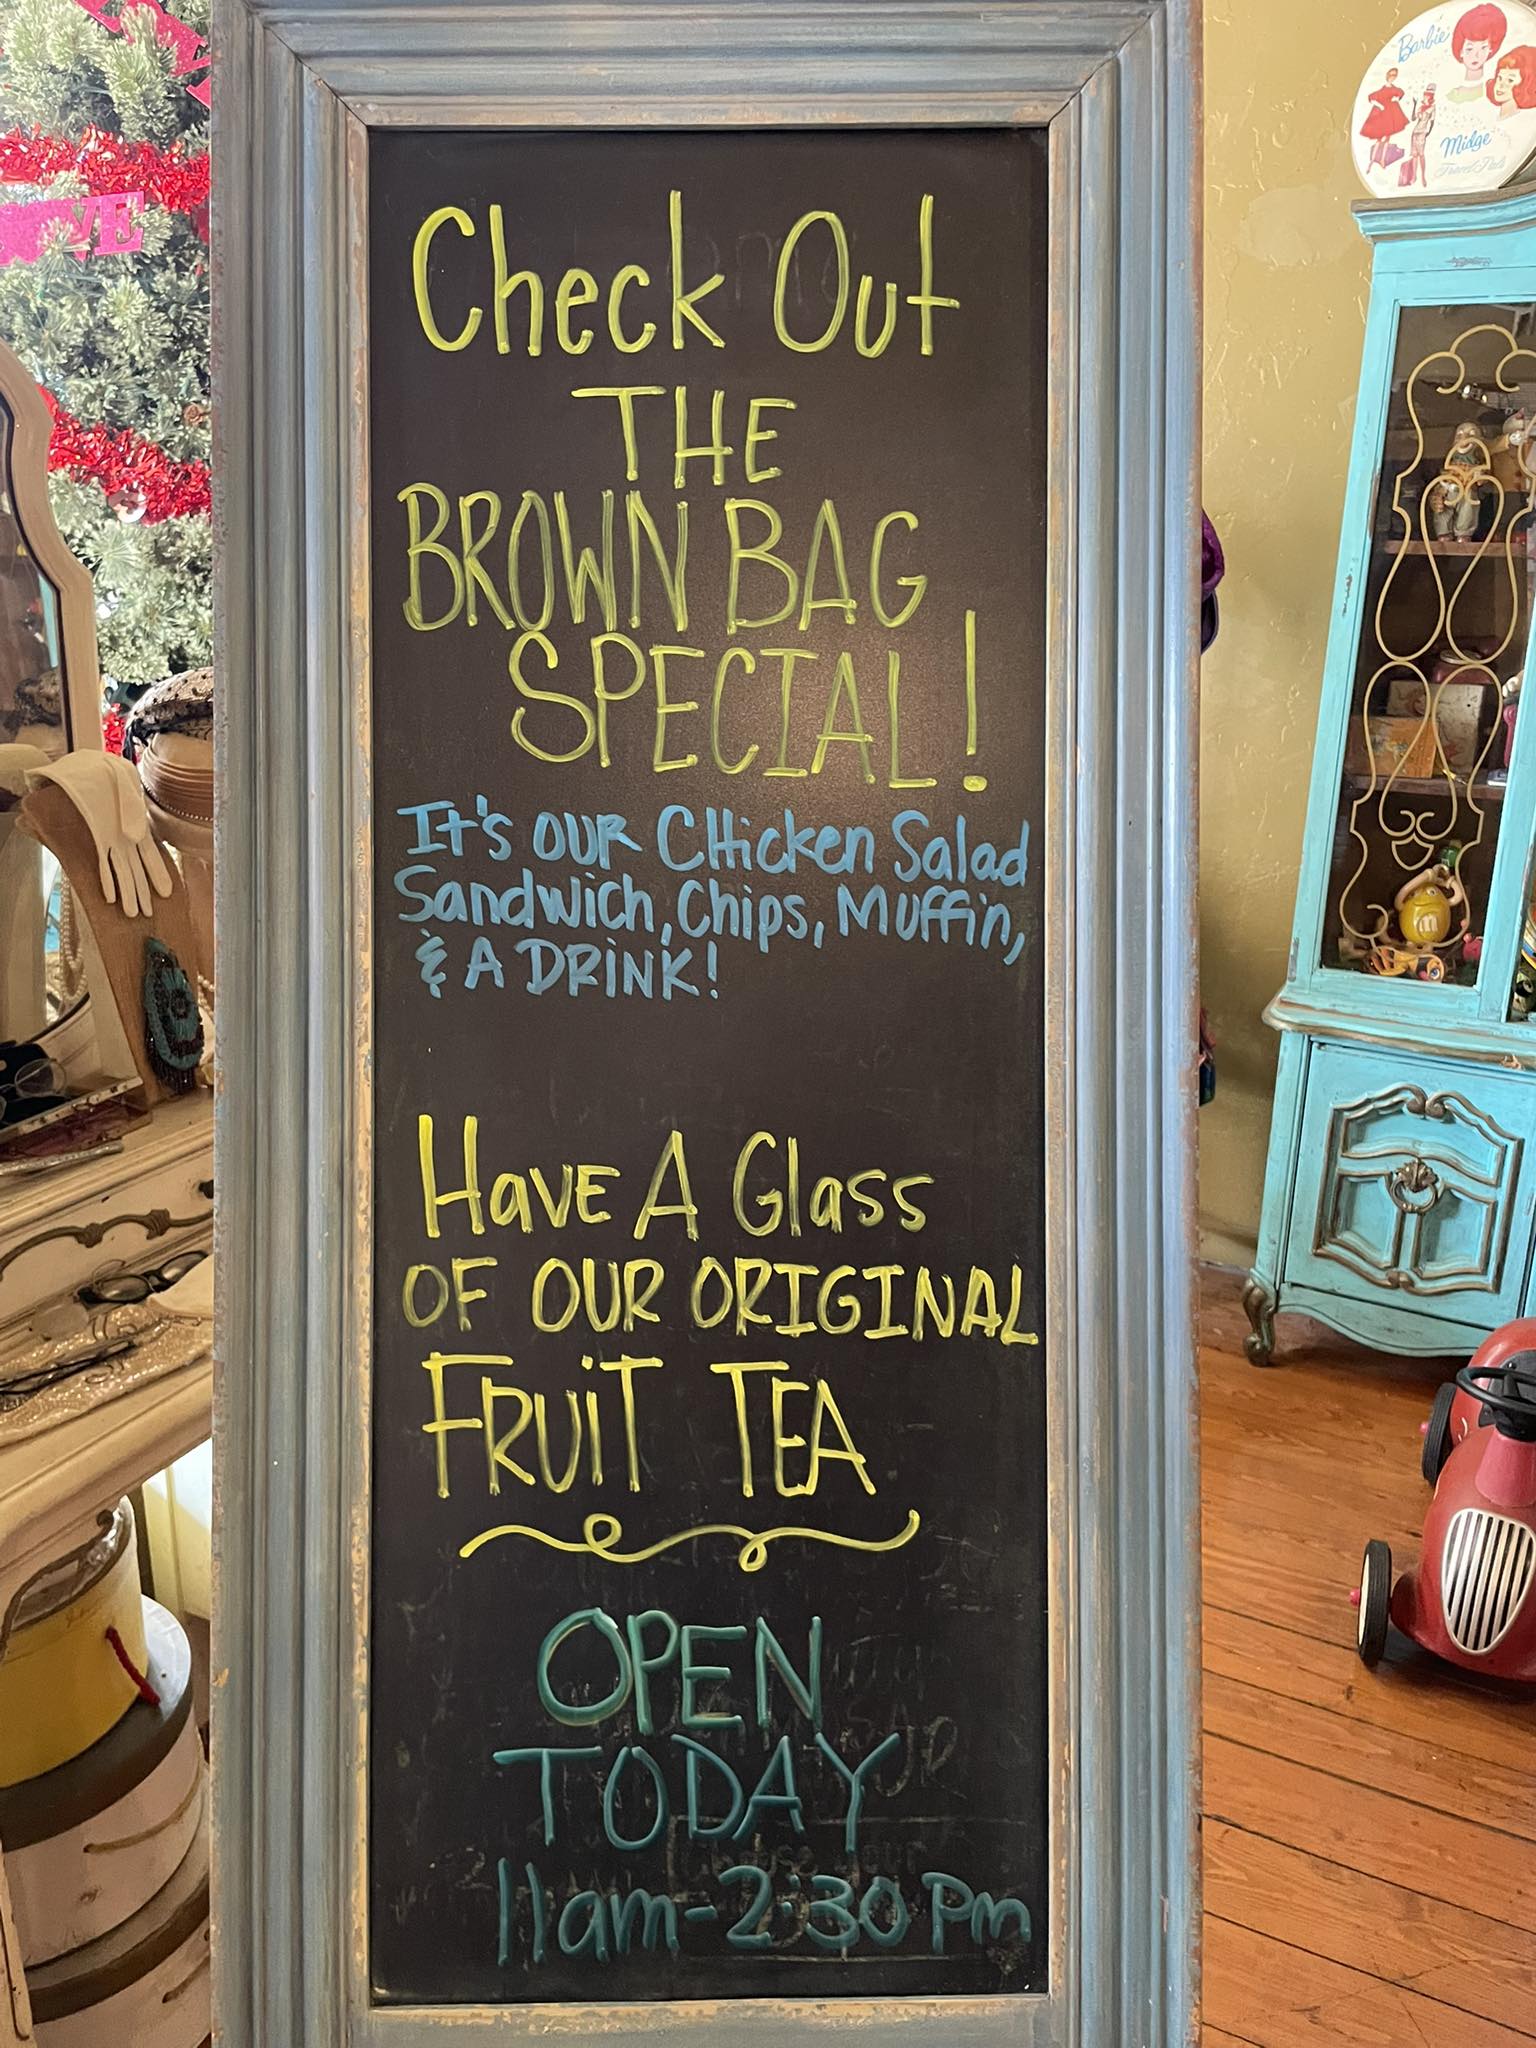 Check Out
THE
BROWN BAG
SPECIAL!
It's OUR CHicken Salad
Sandwich, Chips, Muffin,
& A DRINK!
HavE A Glass
OF OUR ORIGINAL
FRUiT TEA
OPEN
TODAY
11am-2:30 Pm
Barbie
Midge
Travel Pals
VE
m